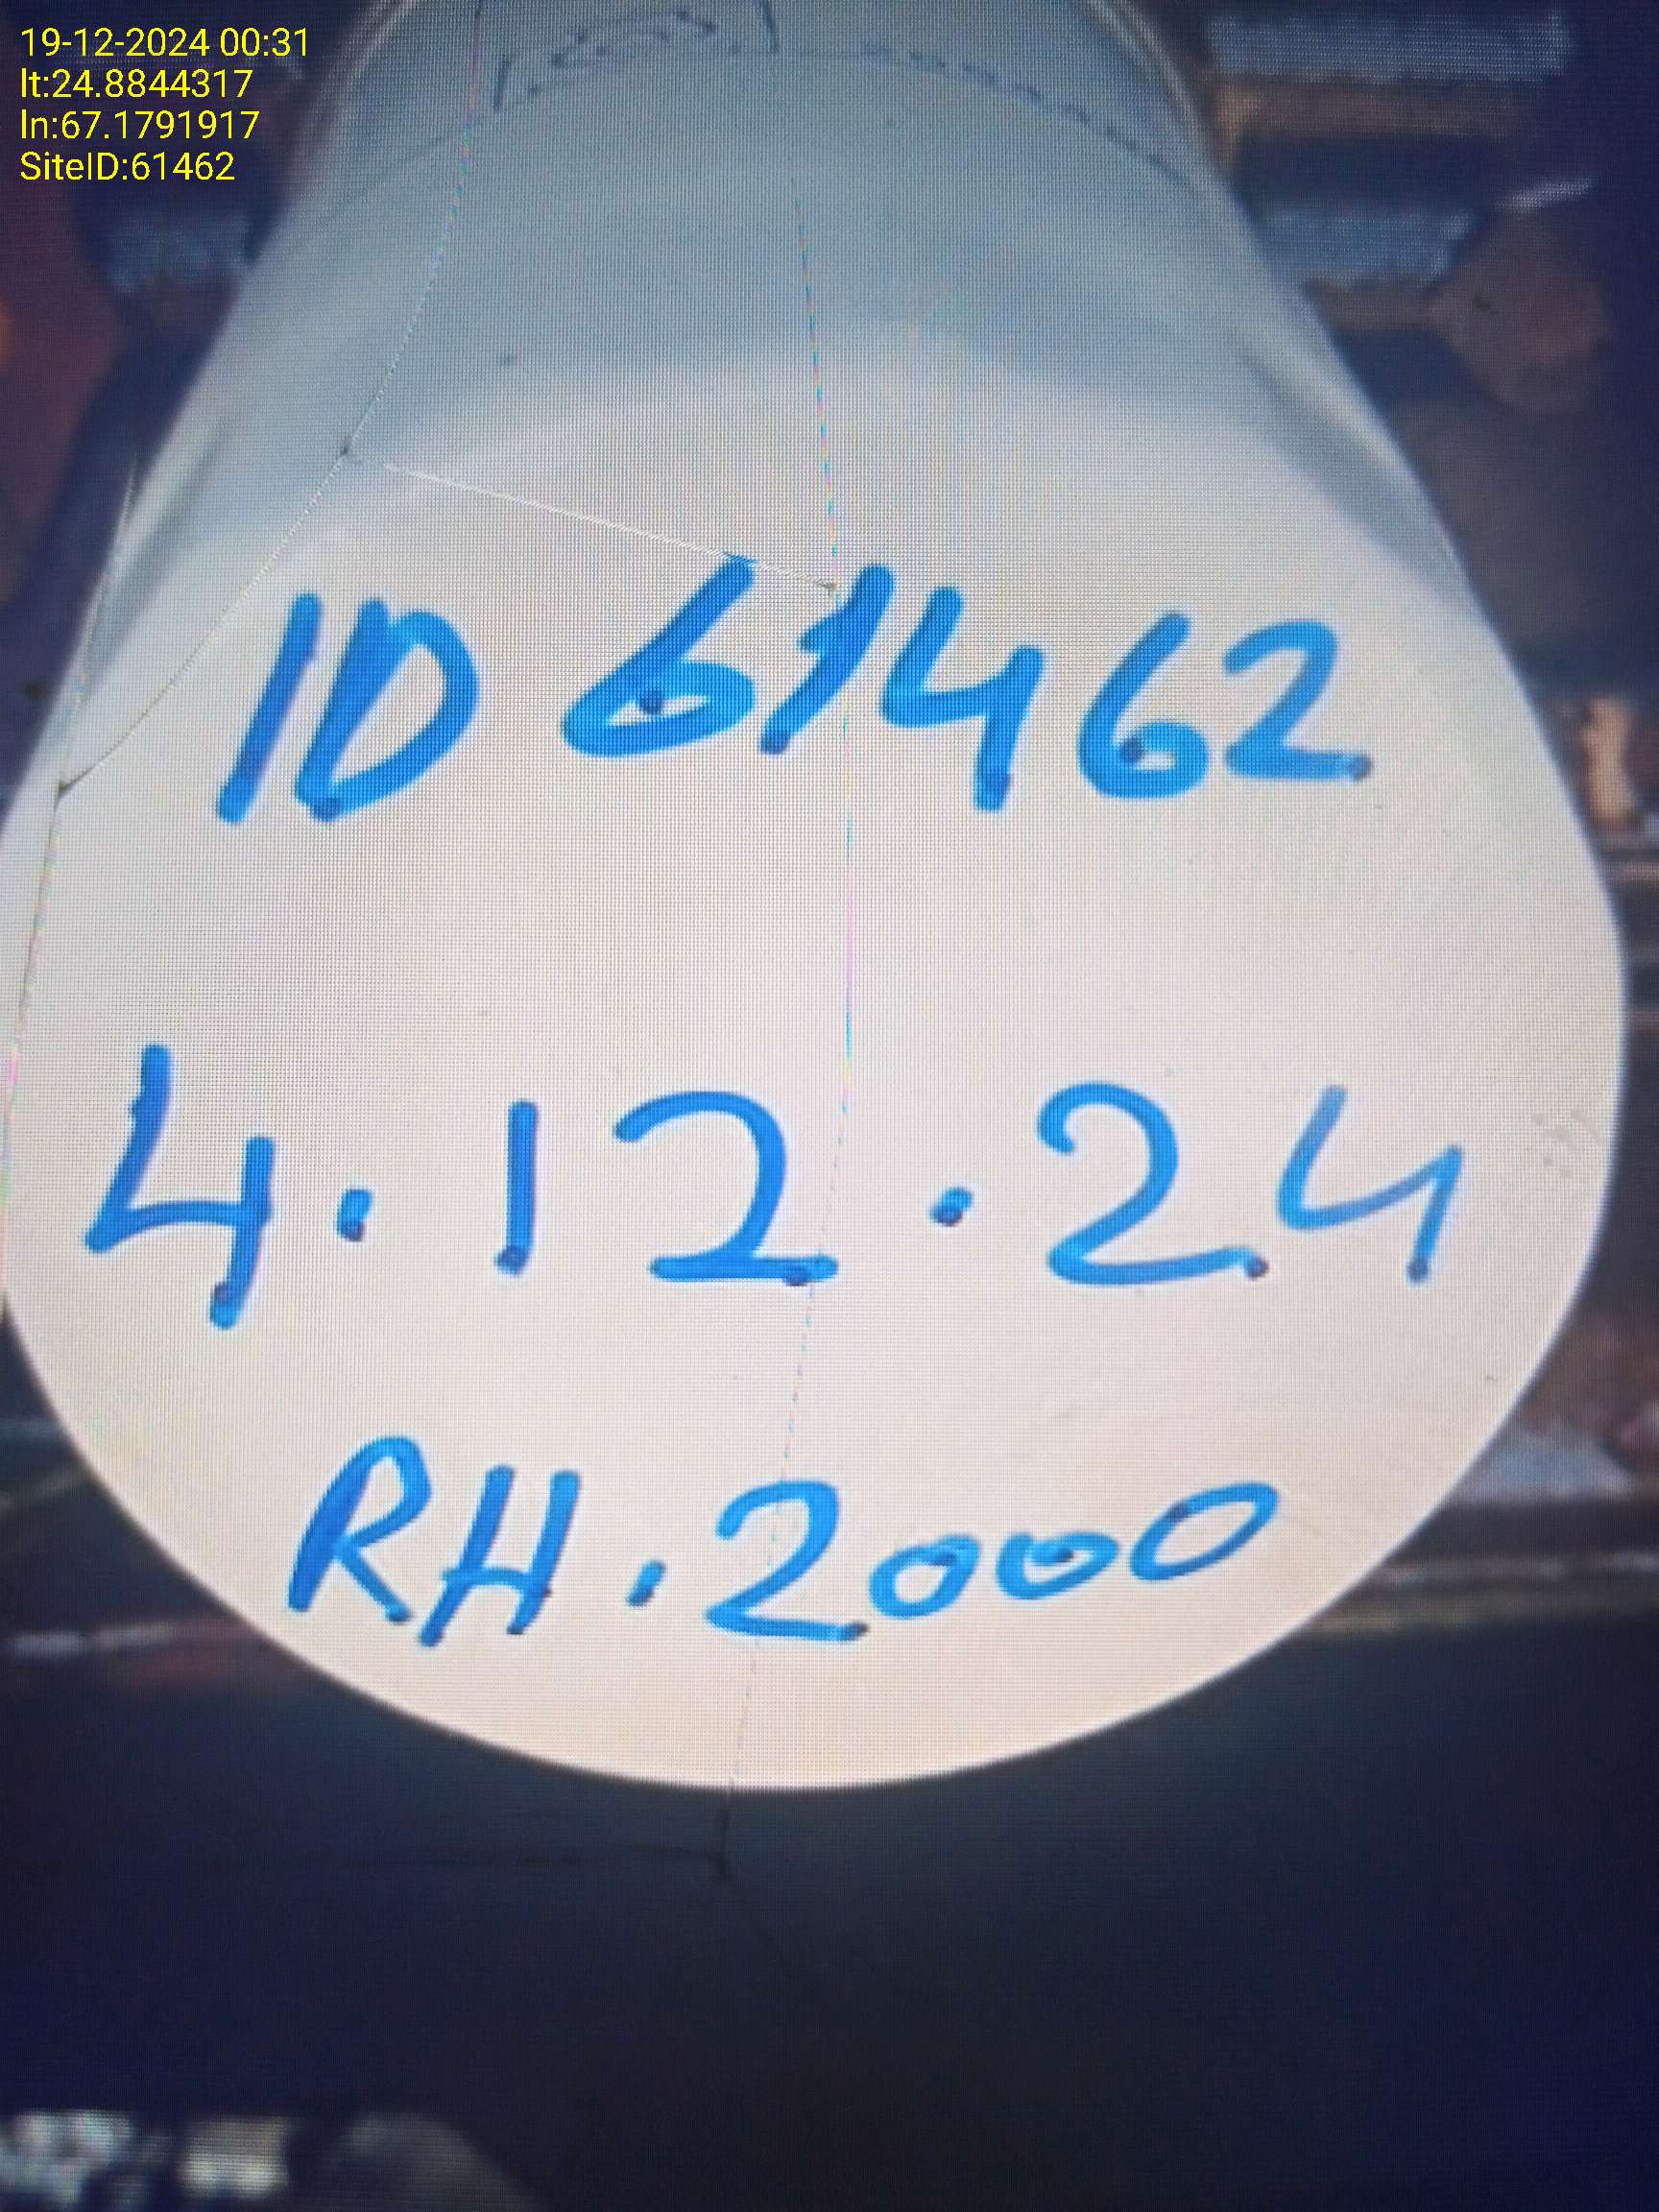 19-12-2024 00:31
lt:24.8844317
ln:67.1791917
SiteID:61462
ID 61462
4.12.24
RH.2000